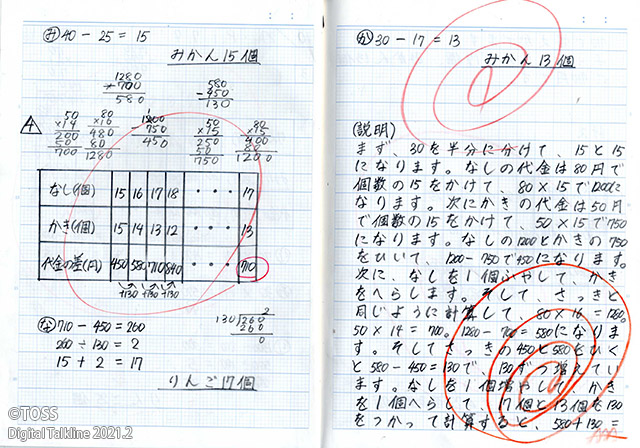 み 40 − 25 = 15
みかん15個
1280
− 700
580
580
− 450
130
4
50
×14
200
50
700
80
×16
480
80
1280
1200
− 750
450
50
×15
250
50
750
80
×15
400
80
1200
なし(個) 15 16 17 18 ・・・ 17
かき(個) 15 14 13 12 ・・・ 13
代金の差(円) 450 580 710 840 ・・・ 710
+130 +130 +130
な 710 − 450 = 260
260 ÷ 130 = 2
15 + 2 = 17
2
130)260
260
0
りんご17個
か 30 − 17 = 13
みかん13個
(説明)
まず、30を半分に分けて、15と15
になります。なしの代金は80円で
個数の15をかけて、80×15で1200に
なります。次にかきの代金は50円
で個数の15をかけて、50×15で750
になります。なしの1200とかきの750
をひいて、1200−750で450になります。
次に、なしを1個ふやして、かき
をへらします。そして、さっきと
同じように計算して、80×16=1280。
50×14=700。1280−700=580になりま
す。そしてさっきの450と580をひく
と580−450=130で、130ずつ増えてい
ます。なしを1個増やして、かき
を1個へらして、17個と13個を130
をつかって計算すると、580+130=
©TOSS
Digital Talkline 2021.2